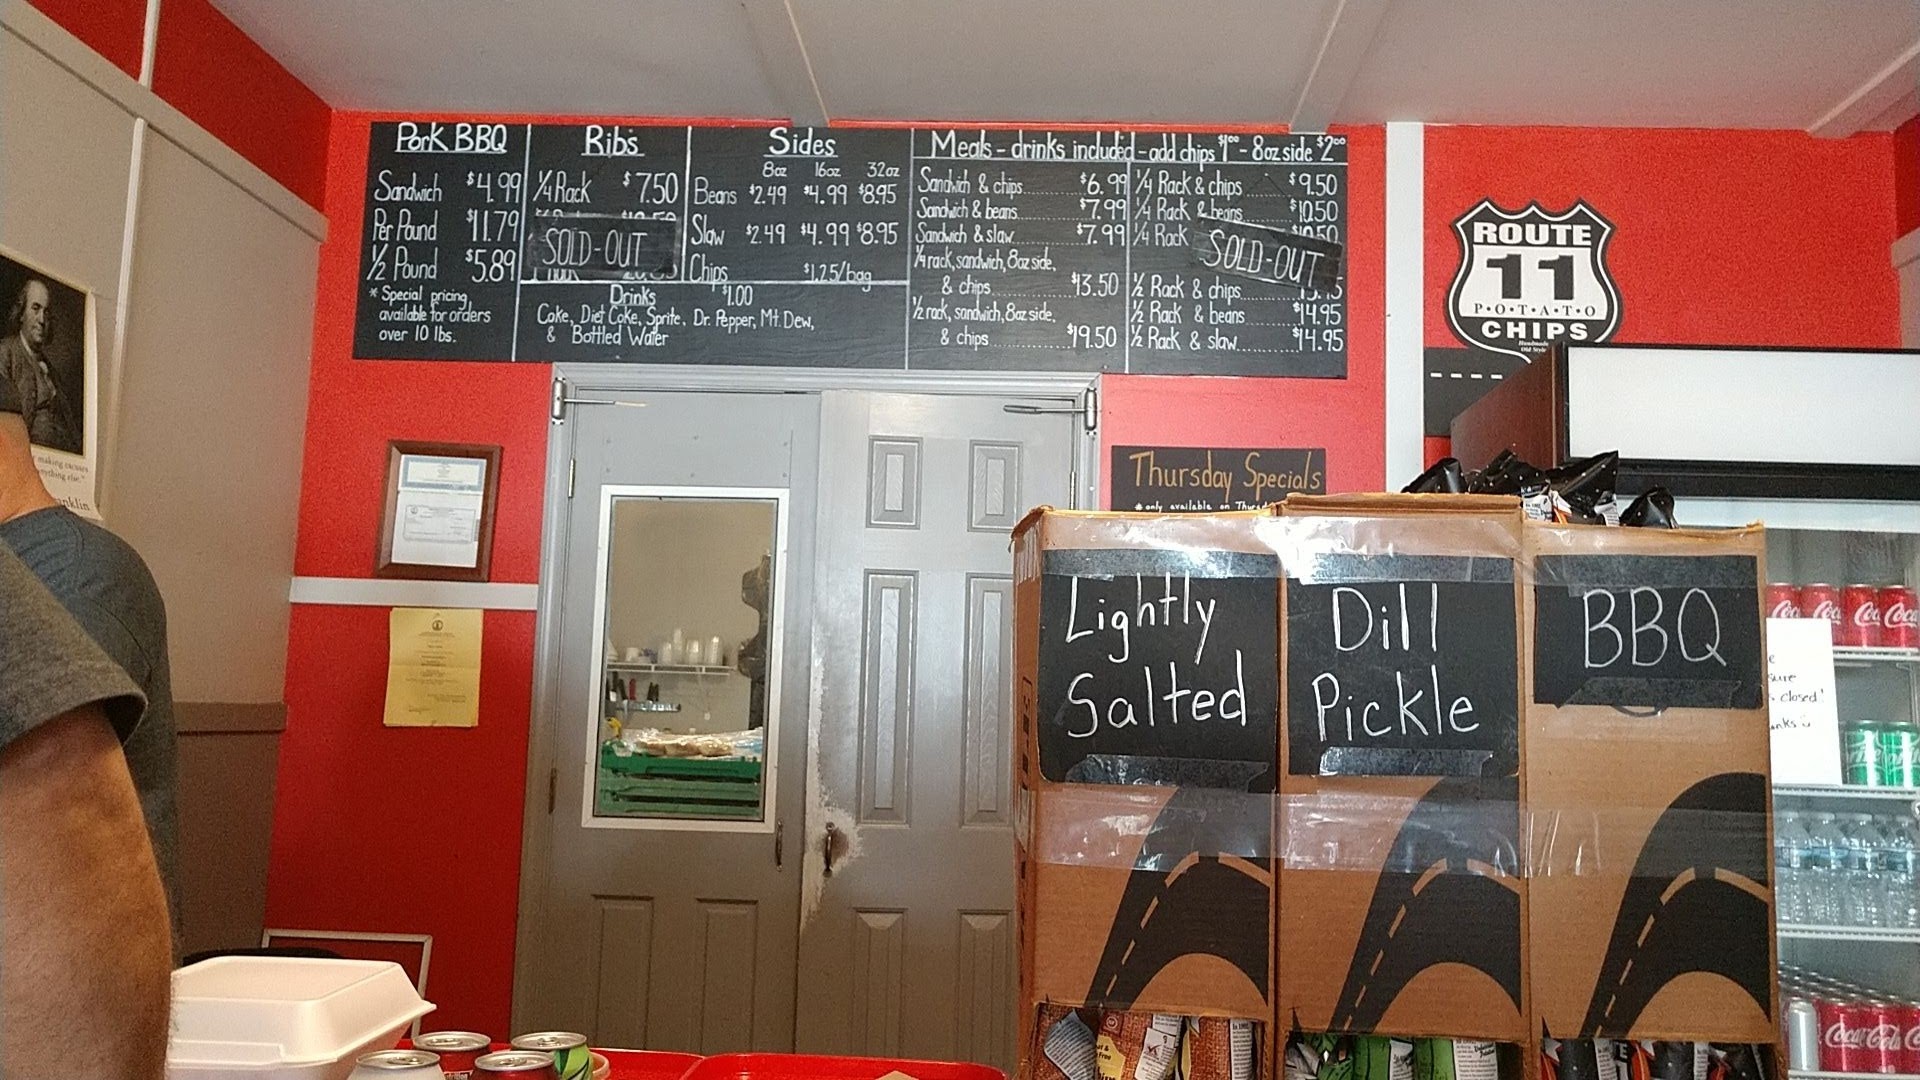 Pork BBQ
Sandwich $4.99
Per Pound $11.79
1/2 Pound $5.89
* Special pricing
available for orders
over 10 lbs.
Ribs
1/4 Rack $7.50
SOLD-OUT
Sides
8oz 16oz 32oz
Beans $2.49 $4.99 $8.95
Slaw $2.49 $4.99 $8.95
Chips $1.25/bag
Drinks $1.00
Coke, Diet Coke, Sprite, Dr. Pepper, Mt. Dew,
& Bottled Water
Meals - drinks included - add chips $1.00 - 8oz side $2.00
Sandwich & chips $6.99
Sandwich & beans $7.99
Sandwich & slaw $7.99
1/4 rack, sandwich, 8oz side,
& chips $13.50
1/2 rack, sandwich, 8oz side,
& chips $19.50
1/4 Rack & chips $9.50
1/4 Rack & beans $10.50
1/4 Rack
SOLD-OUT
1/2 Rack & chips
1/2 Rack & beans $14.95
1/2 Rack & slaw $14.95
ROUTE
11
POTATO
CHIPS
Thursday Specials
* only available on
Lightly
Salted
Dill
Pickle
BBQ
making excuses
else."
closed!
Coca-Cola